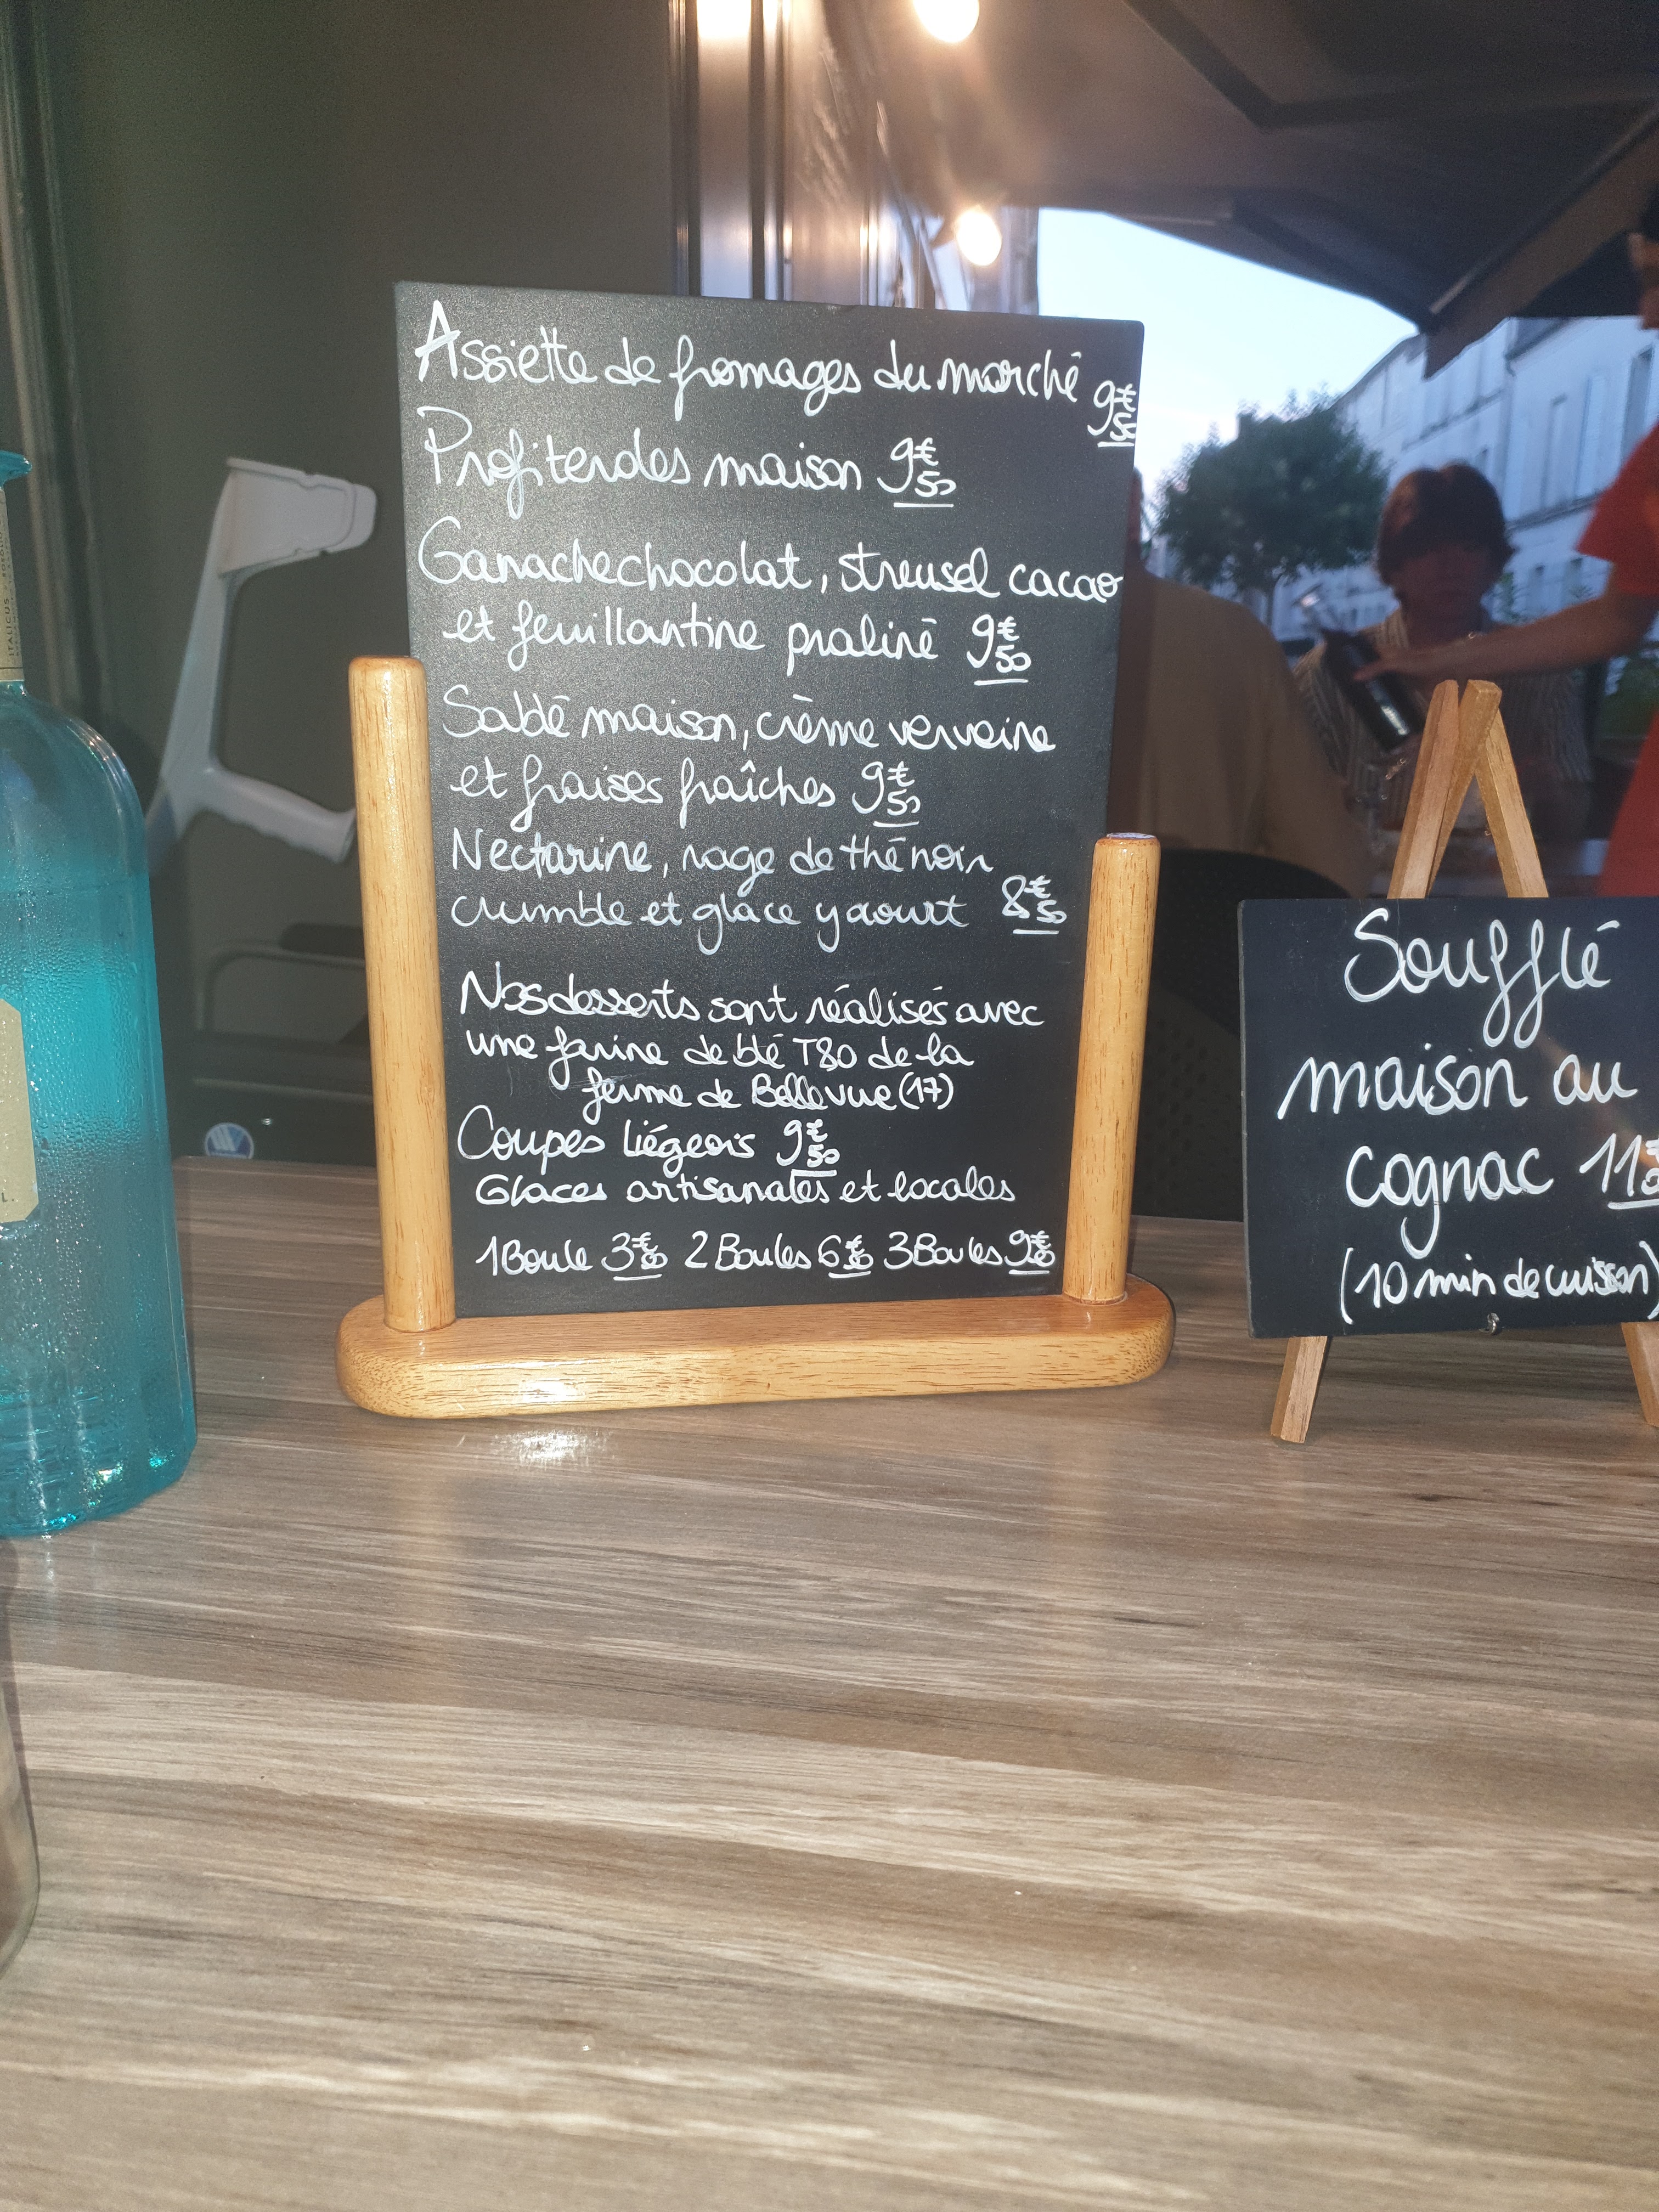 Assiette de fromages du marché 9€50
Profiteroles maison 9€50
Ganache chocolat, streusel cacao
et feuillantine praliné 9€50
Sablé maison, crème verveine
et fraises fraîches 9€50
Nectarine, nage de thé noir
crumble et glace yaourt 8€50
Nos desserts sont réalisés avec
une farine de blé T80 de la
ferme de Bellevue (17)
Coupes liégeois 9€50
Glaces artisanales et locales
1 Boule 3€ 2 Boules 6€ 3 Boules 9€
Soufflé
maison au
cognac 11€
(10 min de cuisson)
ITALICUS